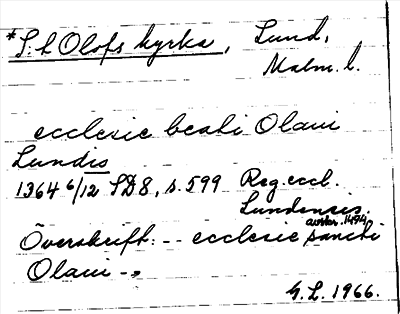 *S:t Olofs kyrka, Lund,
Malm. l.
ecclesie beati Olaui
Lundis
1364 6/12 SD8, s. 599 Reg. eccl.
Lundensis.
avskr. 1494
Överskrift: -- ecclesie sancti
Olaui --,
G.L. 1966.